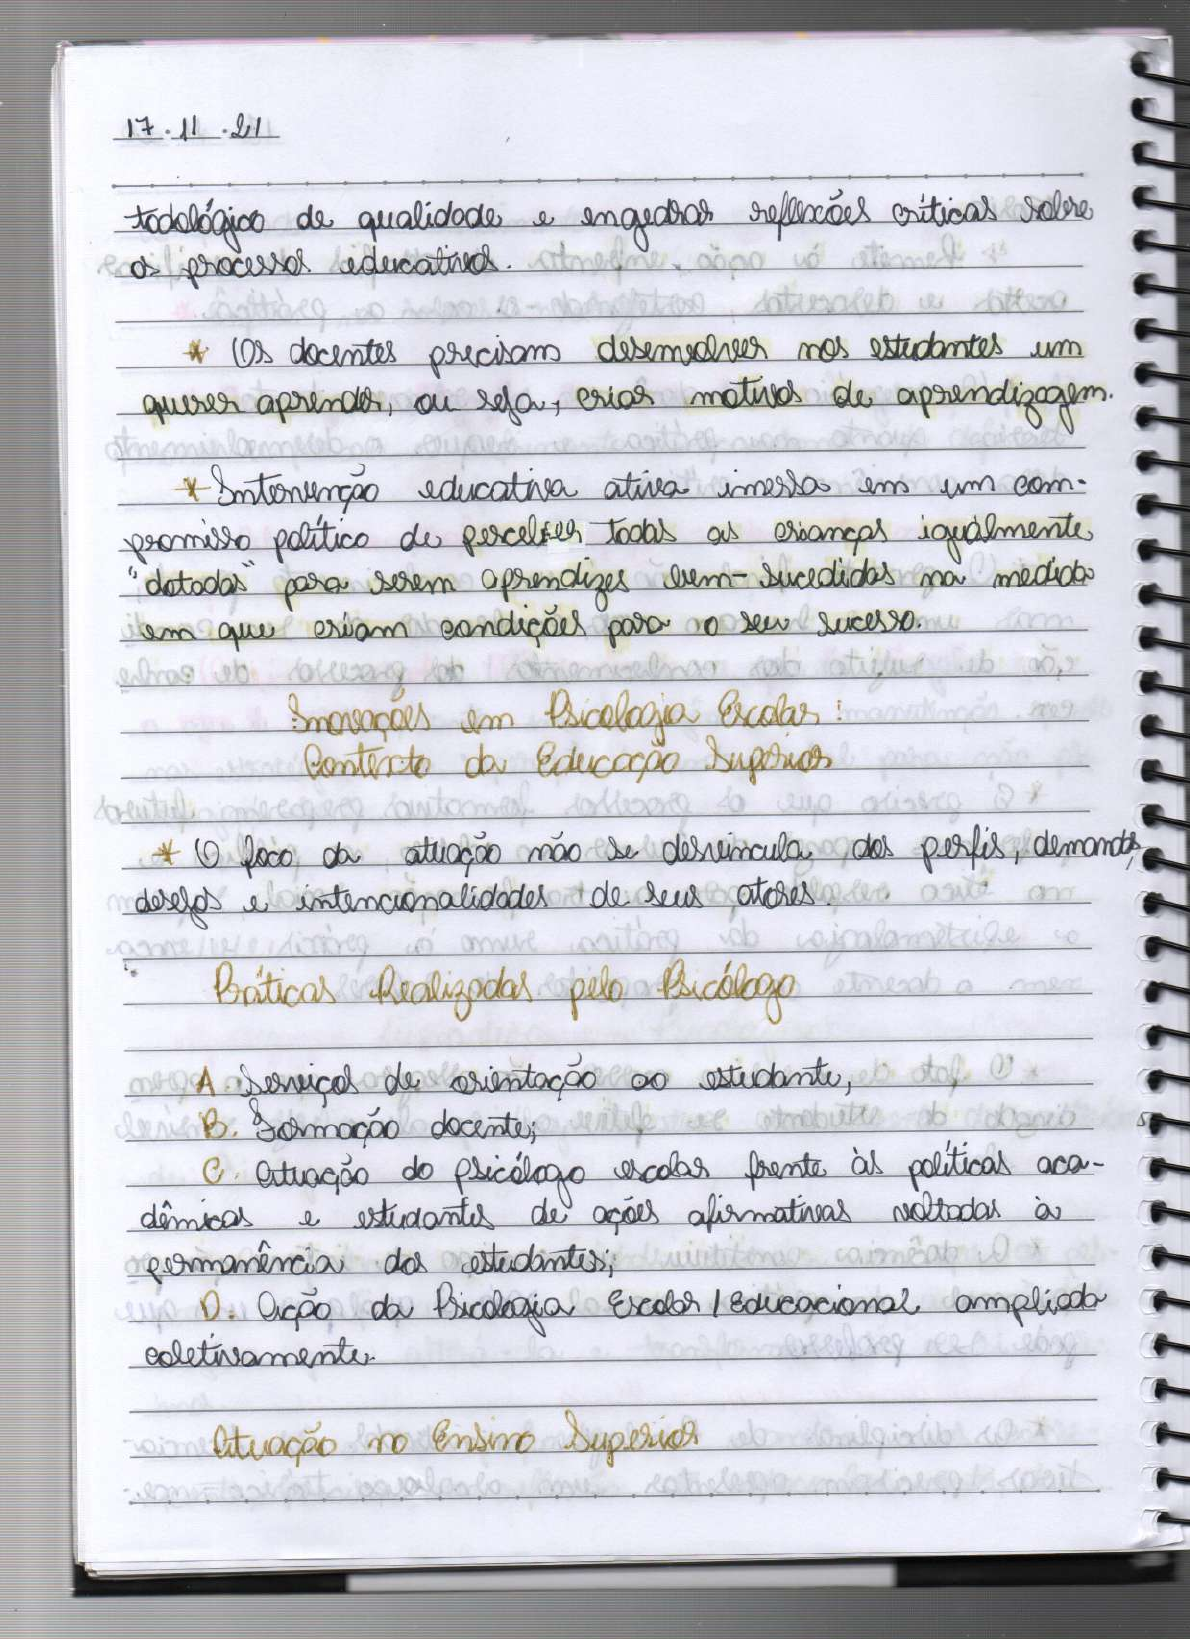 17.11.21
todológico de qualidade e engedrar reflexões críticas sobre
os processos educativos.
* Os docentes precisam desenvolver nos estudantes um
querer aprender, ou seja, criar motivos de aprendizagem.
* Intervenção educativa ativa imersa em um com-
promisso político de perceber todas as crianças igualmente
"dotadas" para serem aprendizes bem-sucedidas na medida
em que criam condições para o seu sucesso.
Inovações em Psicologia Escolar:
Contexto da Educação Superior
* O foco da atuação não se desvincula dos perfis, demandas,
desejos e intencionalidades de seus atores.
Práticas Realizadas pelo Psicólogo
A. Serviços de orientação ao estudante;
B. Formação docente;
C. Atuação do psicólogo escolar frente às políticas aca-
dêmicas e estudantes de ações afirmativas voltadas à
permanência dos estudantes;
D. Ação da Psicologia Escolar/Educacional ampliada
coletivamente.
Atuação no Ensino Superior